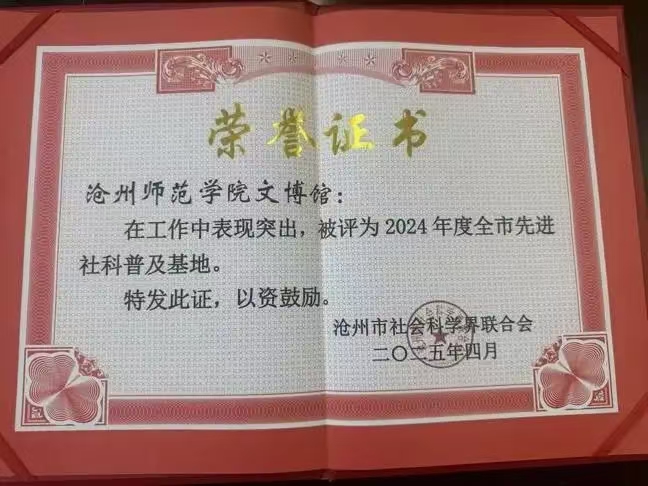 荣誉证书
沧州师范学院文博馆：
在工作中表现突出，被评为2024年度全市先进
社科普及基地。
特发此证，以资鼓励。
沧州市社会科学界联合会
二〇二五年四月